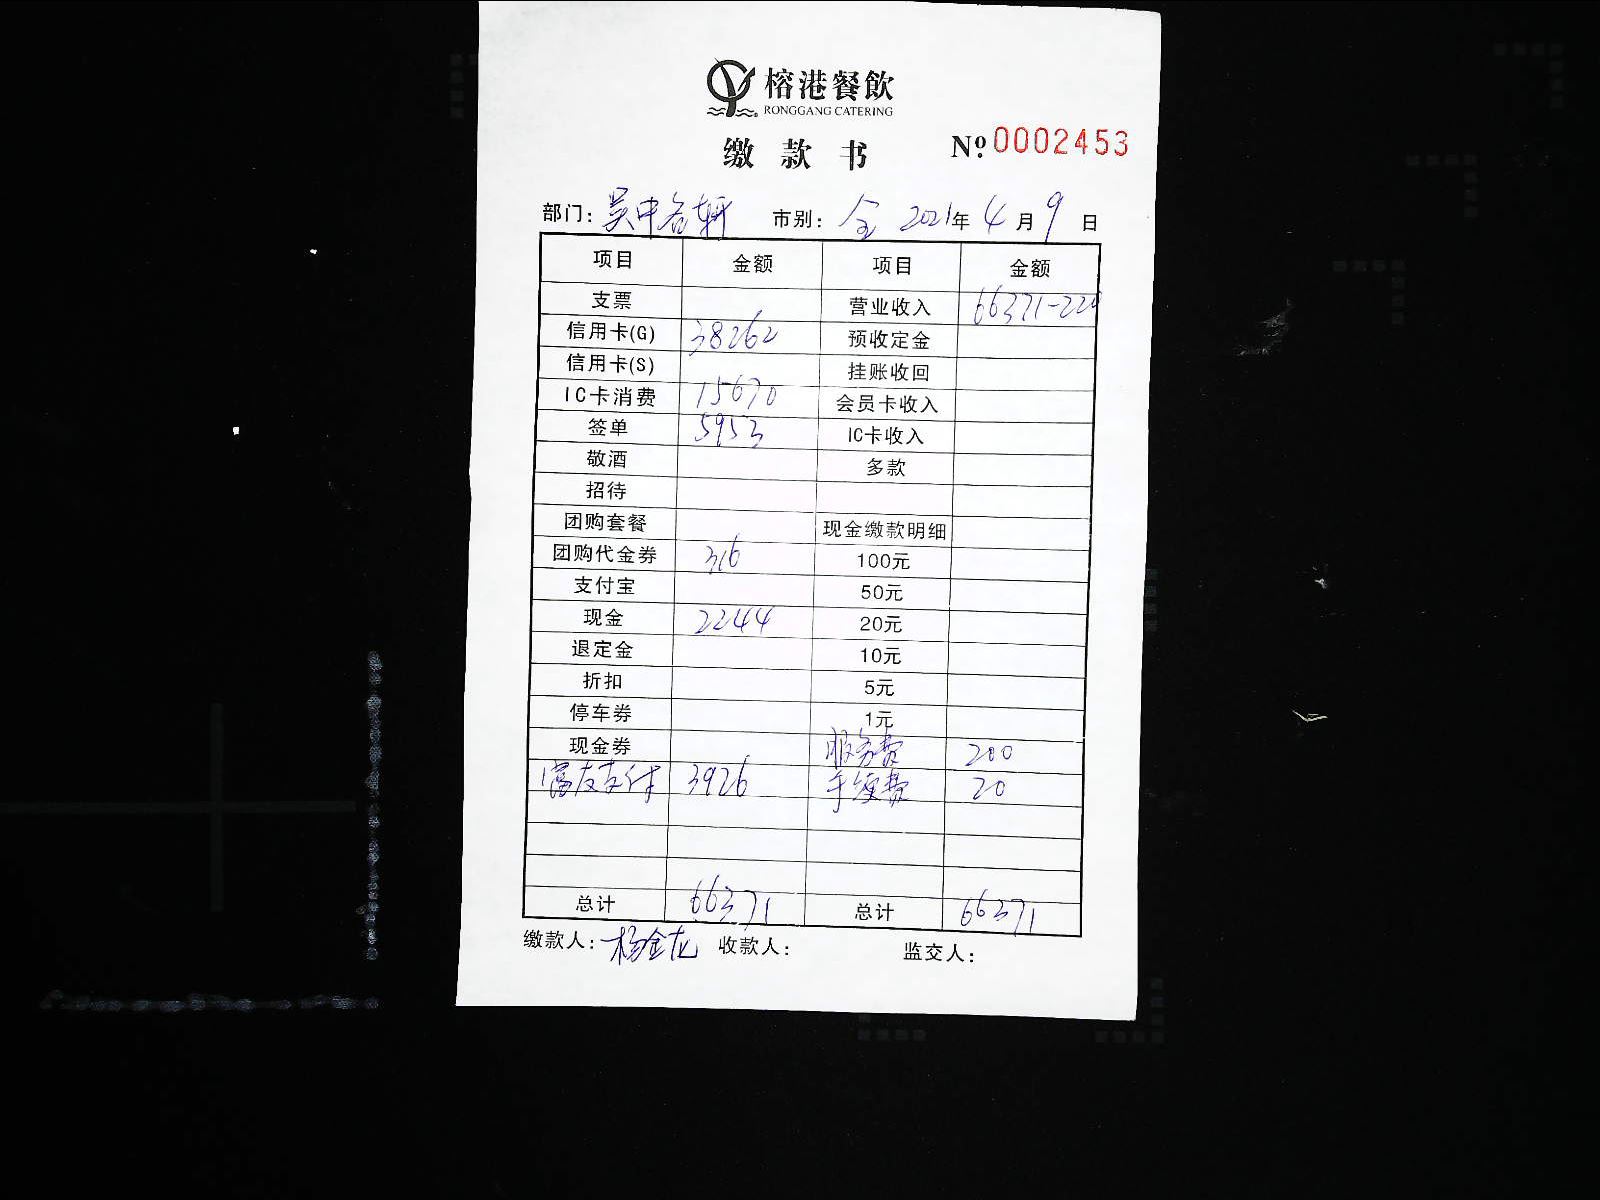 榕港餐飲
RONGGANG CATERING
缴款书 Nº 0002453
部门: 吴中名轩 市别: 全 2021年 4月 9日
项目 金额 项目 金额
支票 营业收入 66371-220
信用卡(G) 38262 预收定金
信用卡(S) 挂账收回
IC卡消费 15670 会员卡收入
签单 5953 IC卡收入
敬酒 多款
招待
团购套餐 现金缴款明细
团购代金券 316 100元
支付宝 50元
现金 2244 20元
退定金 10元
折扣 5元
停车券 1元
现金券 服务费 200
富友支付 3926 手续费 20
总计 66371 总计 66371
缴款人: 杨金龙 收款人: 监交人: